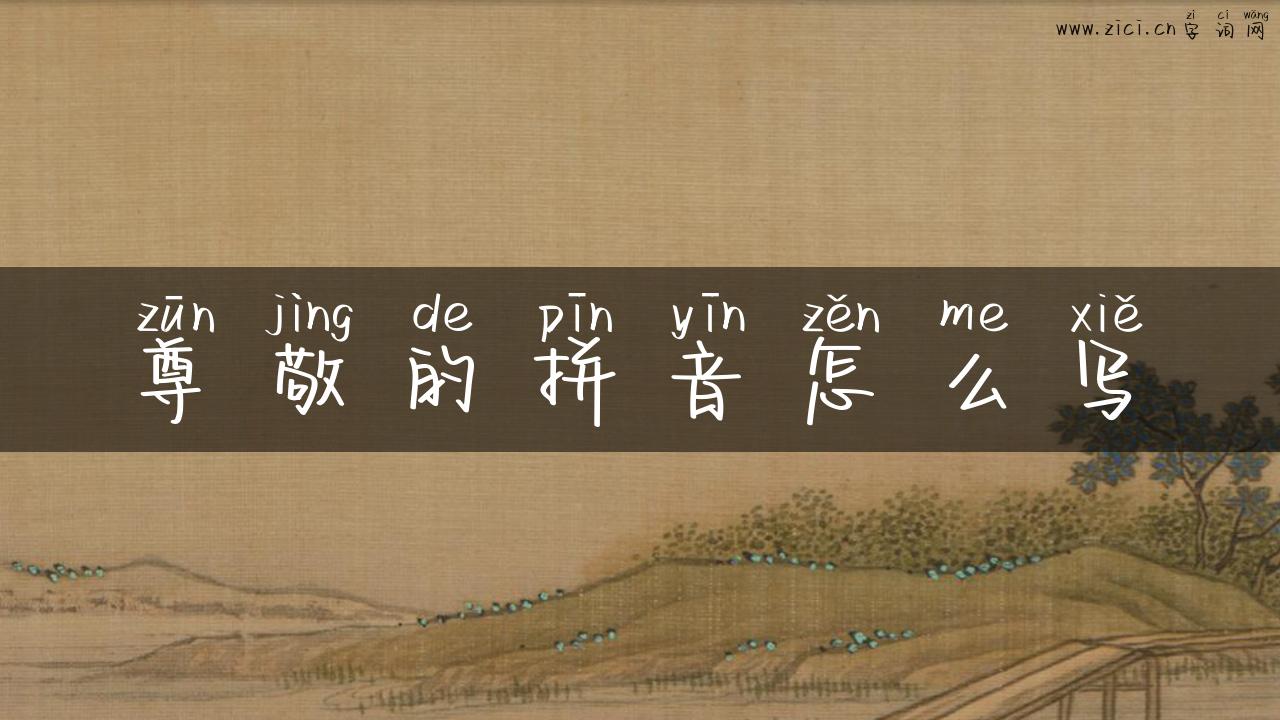 zì cí wǎng
www.zici.cn字词网
zūn jìng de pīn yīn zěn me xiě
尊敬的拼音怎么写